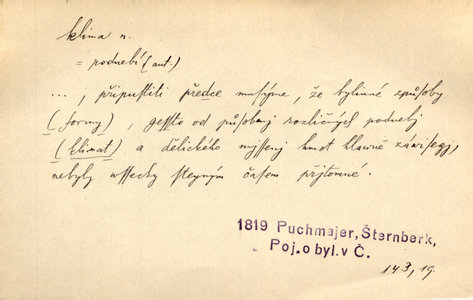 klima n.
= podnebí (aut.)
..., připustiti předce musýme, že bylinné způsoby
(formy), gessto od působenj rozličných podnebj
(klimat) a dělického wyssenj hmot hlawně záwisegj,
nebyly wssecky steyným časem přjtomné.
1819 Puchmajer, Šternberk,
Poj. o byl. v Č.
143, 19.